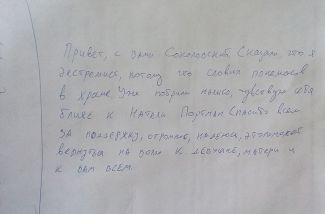 Привет, с вами Соколовский. Сказали, что я
экстремист, потому что словил покемонов
в храме. Уже побрит налысо, чувствую себя
ближе к Натали Портман. Спасибо всем
за поддержку, огромное, надеюсь, это поможет
вернуться на волю к девушке, матери и
к вам всем.